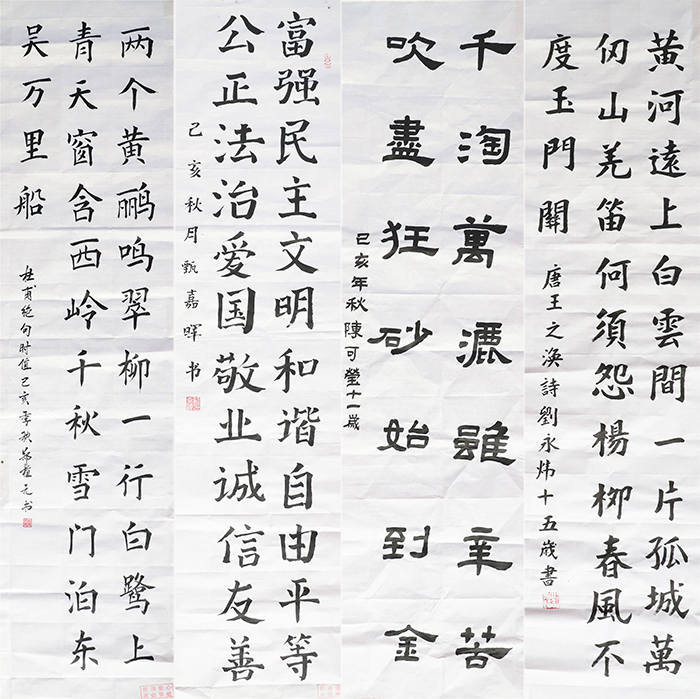 黄河遠上白雲間一片孤城萬
仞山羌笛何須怨楊柳春風不
度玉門關
唐王之渙詩劉永炜十五歲書
千淘萬漉雖辛苦
吹盡狂砂始到金
己亥年秋陳可瑩十一歲
富强民主文明和谐自由平等
公正法治爱国敬业诚信友善
己亥秋月甄嘉暉书
两个黄鹂鸣翠柳一行白鹭上
青天窗含西岭千秋雪门泊东
吴万里船
杜甫绝句时值己亥季秋元书